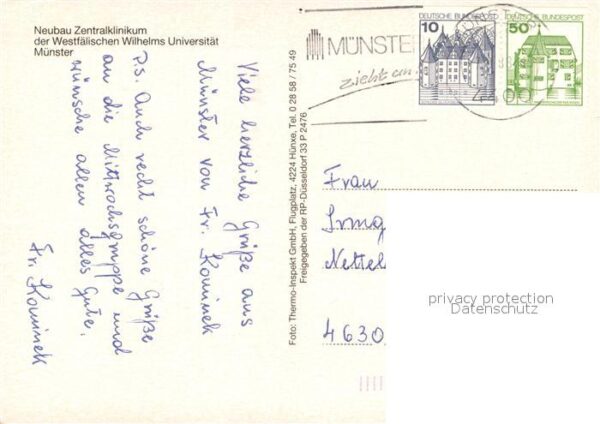 Neubau Zentralklinikum
der Westfälischen Wilhelms Universität
Münster
Viele herzliche Grüße aus
Münster von Fr. Kominek
P.S. Auch recht schöne Grüße
an die Mittwochsgruppe und
wünsche allen alles Gute.
Fr. Kominek
Foto: Thermo-Inspekt GmbH, Flugplatz, 4224 Hünxe, Tel. 0 28 58 / 75 49
Freigegeben der RP-Düsseldorf 33 P 2476
MÜNSTE
zieht an
10
DEUTSCHE BUNDESPOST
50
DEUTSCHE BUNDESPOST
4400
Frau
Irmg
Nettel
4630
privacy protection
Datenschutz